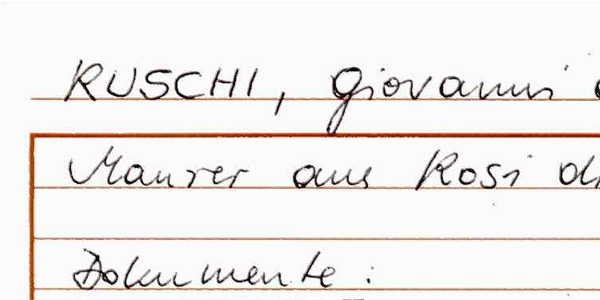 RUSCHI, Giovanni
Maurer aus Rosi
Dokumente: